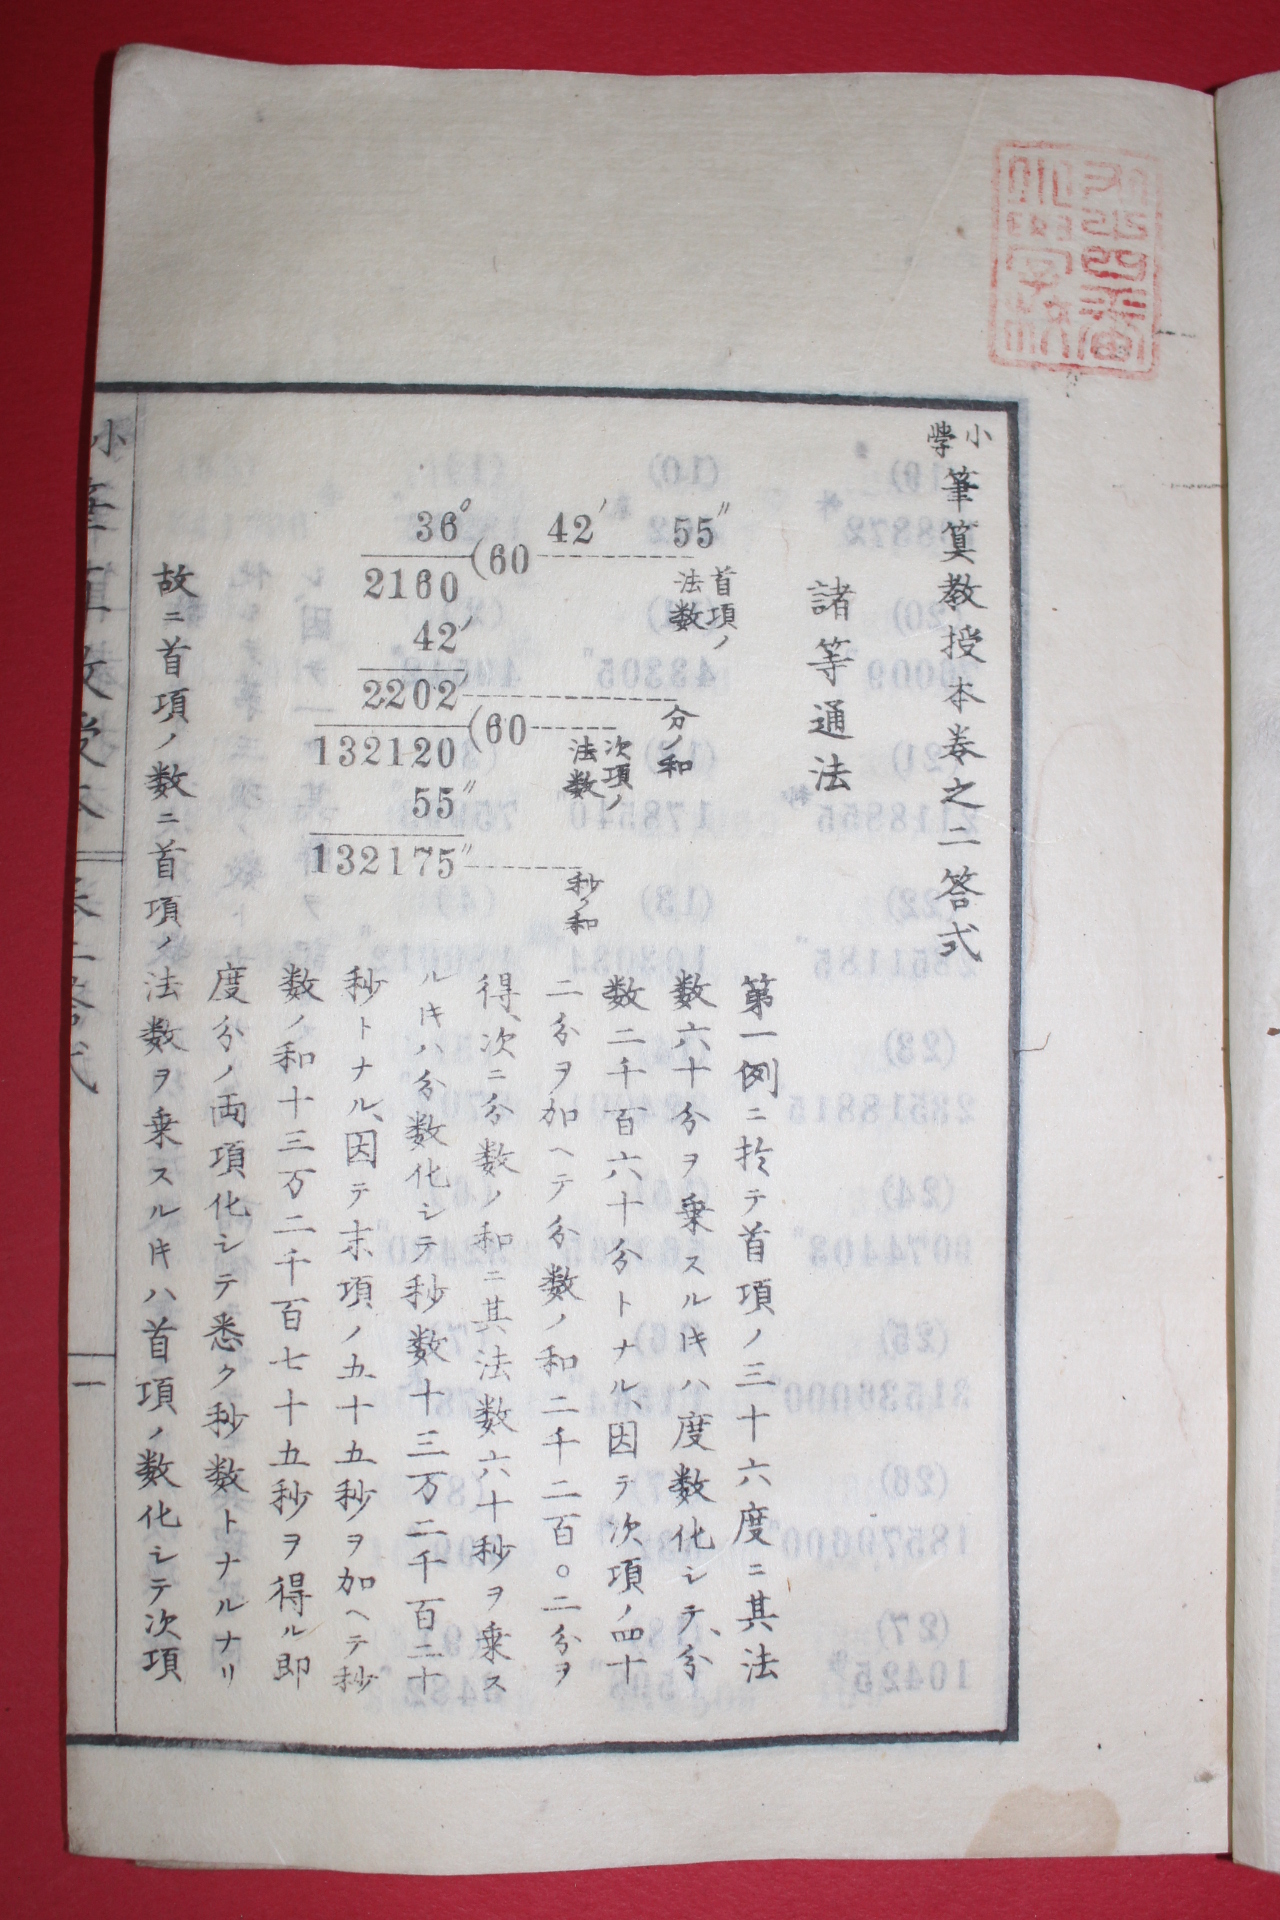 小學筆算教授本卷之二答式
諸等通法
36° 42′ 55″
(60 首項ノ法数
2160
42′
2202 分ノ和
(60 次項ノ法数
132120
55″
132175″ 秒ノ和
第一例ニ於テ首項ノ三十六度ニ其法
数六十分ヲ乗スル𪜈ハ度数化シテ、分
数二千百六十分トナル、因テ次項ノ四十
二分ヲ加ヘテ分数ノ和二千二百〇二分ヲ
得、次ニ分数ノ和ニ其法数六十秒ヲ乗ス
ル𪜈ハ分数化シテ秒数十三万二千百二十
秒トナル、因テ末項ノ五十五秒ヲ加ヘテ秒
数ノ和十三万二千百七十五秒ヲ得ル即
度分ノ両項化シテ悉ク秒数トナルナリ
故ニ首項ノ数ニ首項ノ法数ヲ乗スル𪜈ハ首項ノ数化シテ次項
一